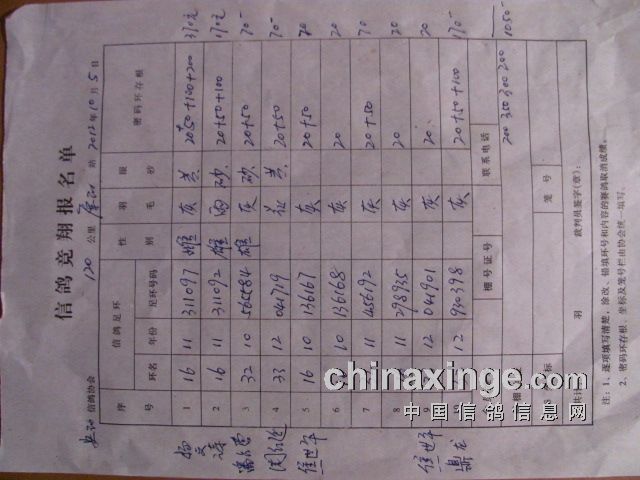 信鸽竞翔报名单
信鸽协会 120 公里 站 2012年10月5日
序号 信鸽足环 性别 羽毛 眼砂 密码环存根
环名 年份 足环号码
1 16 11 311097 雄 灰 黄 20+50+100+200 370元
2 16 11 311092 雄 雨 砂 20+50+100 170元
3 32 10 565584 雄 灰 砂 20+50 70-
4 33 12 041719 黄 20+50 70-
5 16 10 136167 灰 20+50 70
6 10 136168 灰 20 20
7 11 456192 灰 20+50 70
8 11 298935 灰 20 20
9 12 041901 灰 20. 20
12 930398 灰 20+50+100 170-
棚号证号 联系电话 200 350 300 200 1050-
坐标 笼号
共计 羽 裁判员签字(章):
注:1、逐项填写清楚,涂改、错填环号和内容的赛鸽取消成绩。
2、密码环存根、坐标及笼号栏由协会统一填写。
chinaxinge.com
中国信鸽信息网